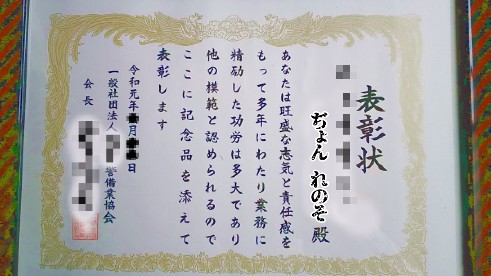 表彰状
ぢょん れのそ 殿
あなたは旺盛な志気と責任感を
もって多年にわたり業務に
精励した功労は多大であり
他の模範と認められるので
ここに記念品を添えて
表彰します
令和元年 月 日
一般社団法人 警備業協会
会長